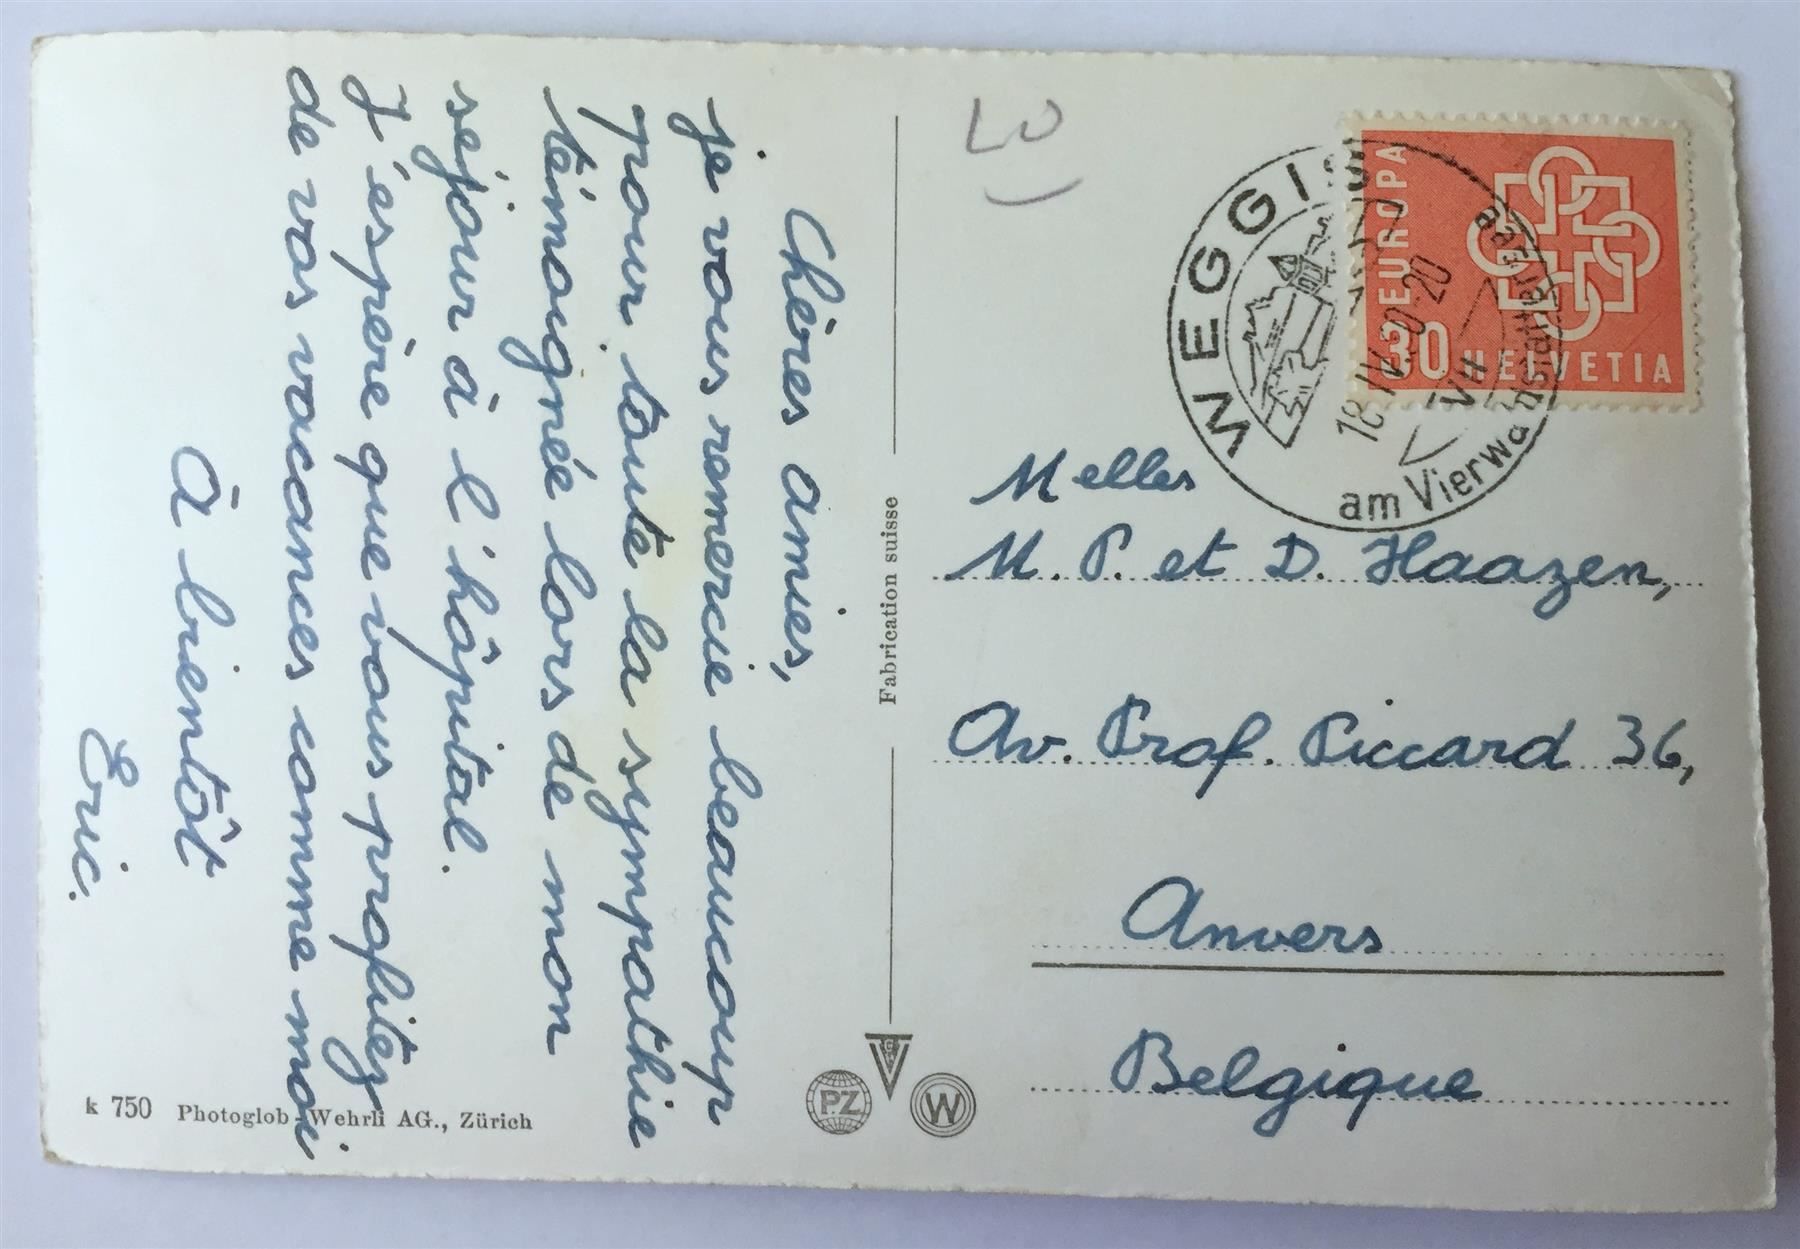 Chères amies,
je vous remercie beaucoup
pour toute la sympathie
témoignée lors de mon
séjour à l'hôpital.
J'espère que vous profitez
de vos vacances comme moi.
À bientôt
Eric.
k 750 Photoglob-Wehrli AG., Zürich
Fabrication suisse
PZ
W
EUROPA
30 HELVETIA
WEGGIS
18. IV. 20
am Vierwaldstättersee
Melles
M. P. et D. Haazen,
Av. Prof. Piccard 36,
Anvers
Belgique